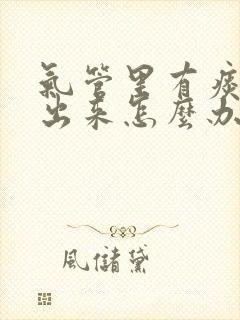 氣管里有痰
出來怎麼办
風儲黛